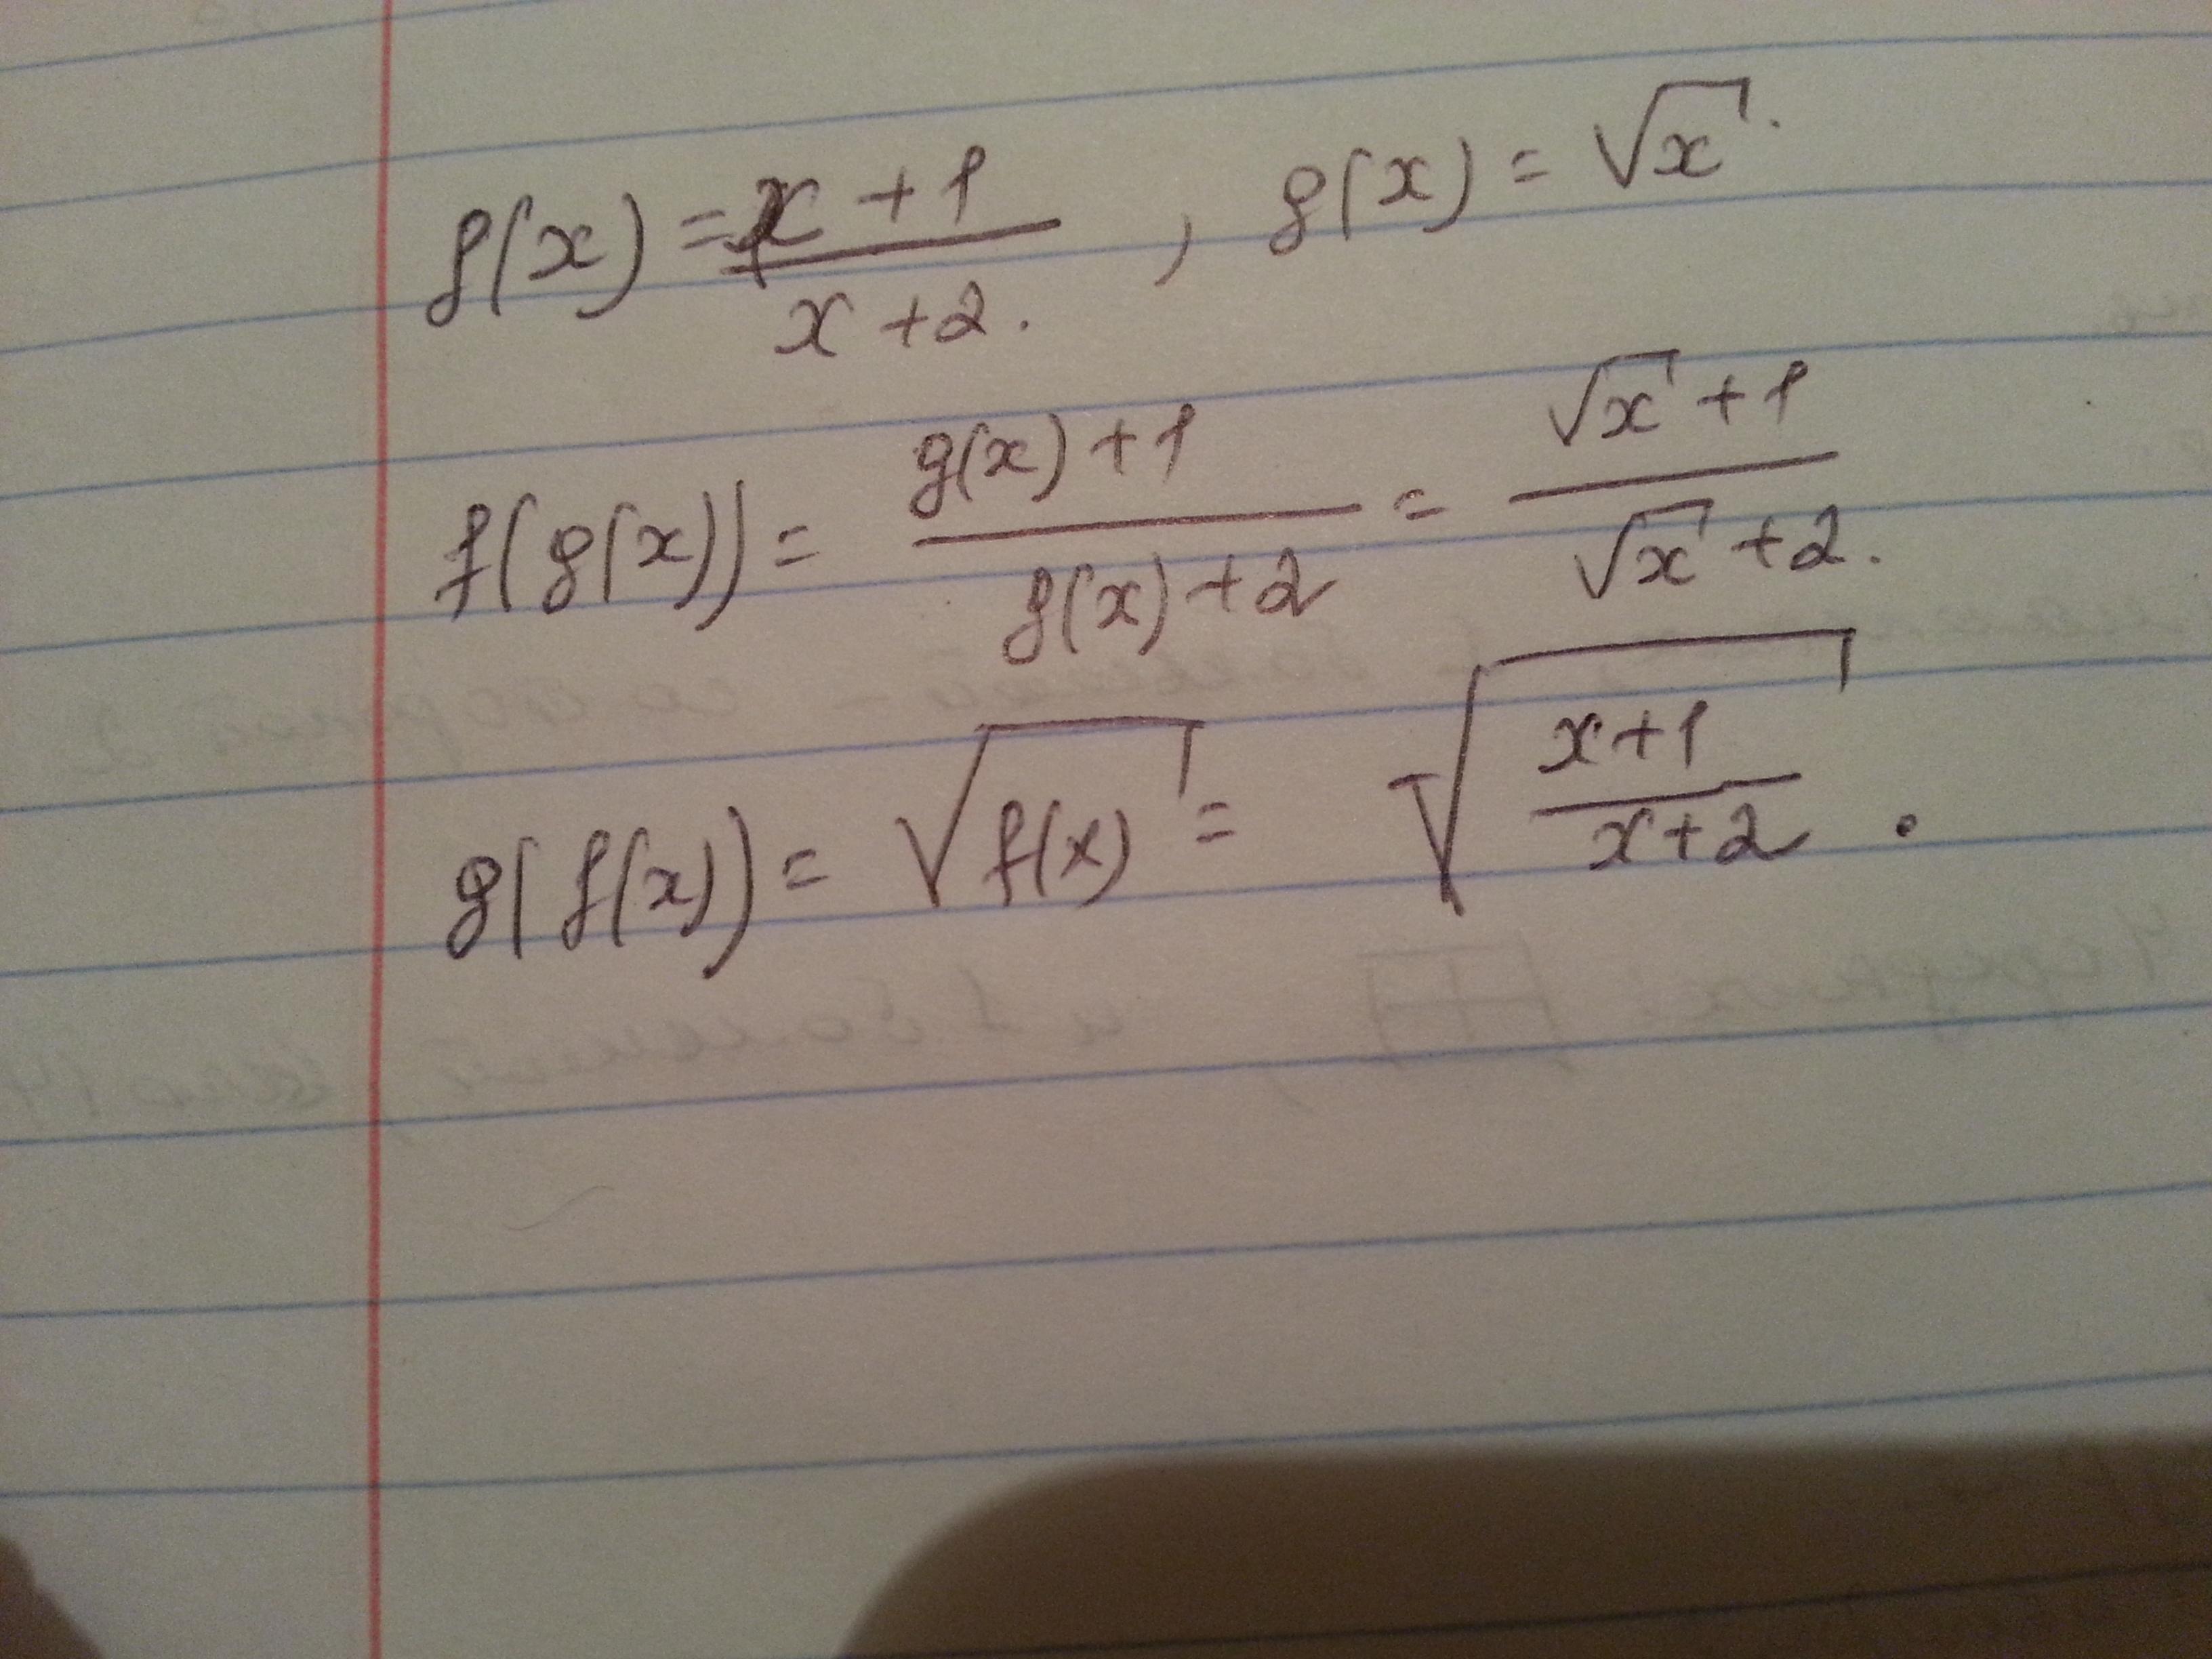 f(x) = x + 1 / x + 2. , g(x) = √x.
f(g(x)) = g(x) + 1 / g(x) + 2 = √x + 1 / √x + 2.
g(f(x)) = √f(x) = √x+1 / x+2 .